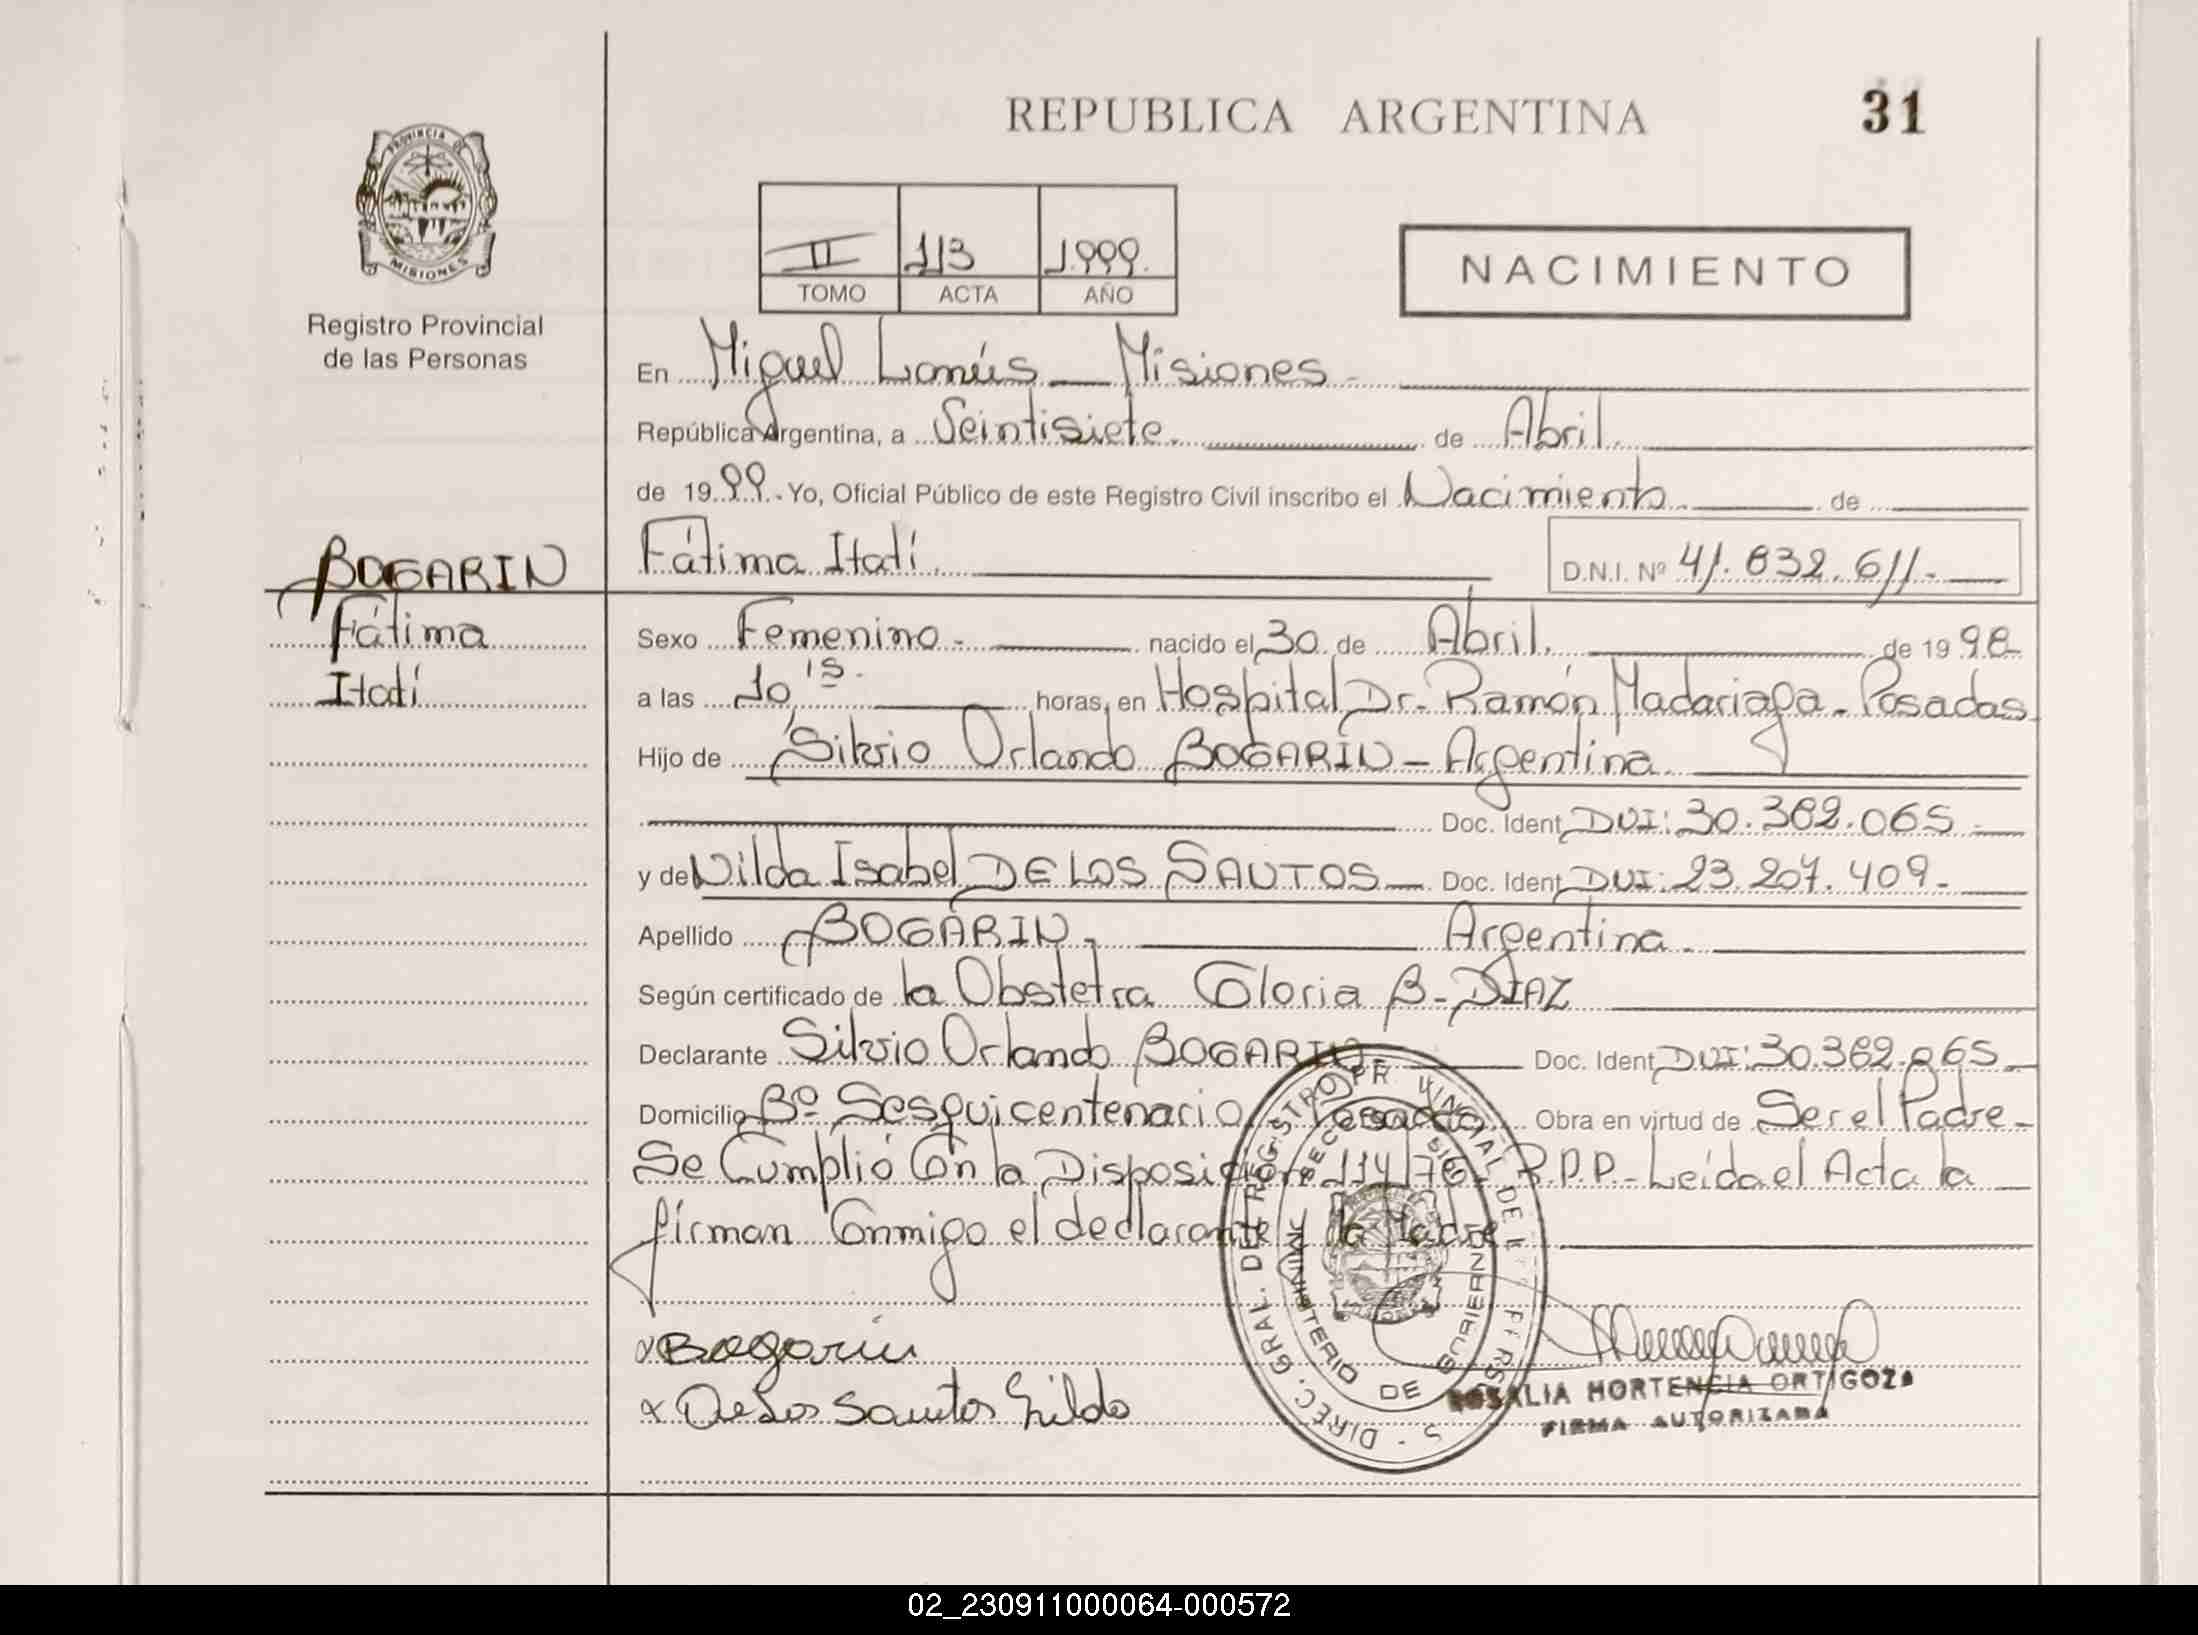 REPUBLICA ARGENTINA
31
PROVINCIA DE
MISIONES
Registro Provincial
de las Personas
II 113 1.999.
TOMO ACTA AÑO
NACIMIENTO
En Miguel Lanús - Misiones -
República Argentina, a Veintisiete. de Abril.
de 1999. Yo, Oficial Público de este Registro Civil inscribo el Nacimiento. de
BOGARIN
Fátima Itatí.
D.N.I. Nº 41.832.611.-
Fátima
Itatí
Sexo Femenino - nacido el 30 de Abril. de 1998
a las 10,15. horas, en Hospital Dr. Ramón Madariaga - Posadas
Hijo de Silvio Orlando BOGARIN - Argentina.
Doc. Ident DNI: 30.362.065 -
y de Nilda Isabel DE LOS SANTOS - Doc. Ident DNI: 23.207.409 -
Apellido BOGARIN - Argentina.
Según certificado de la Obstetra Gloria B. DIAZ
Declarante Silvio Orlando BOGARIN - Doc. Ident DNI: 30.362.065 -
Domicilio Bº Sesquicentenario, Posadas Obra en virtud de Ser el Padre -
Se Cumplió Con la Disposición 114/76 - R.P.P. - Leída el Acta la
firman Conmigo el declarante y la Madre
x Bogarin
x De Los Santos Nilda
ROSALIA HORTENCIA ORTIGOZA
FIRMA AUTORIZADA
02_230911000064-000572